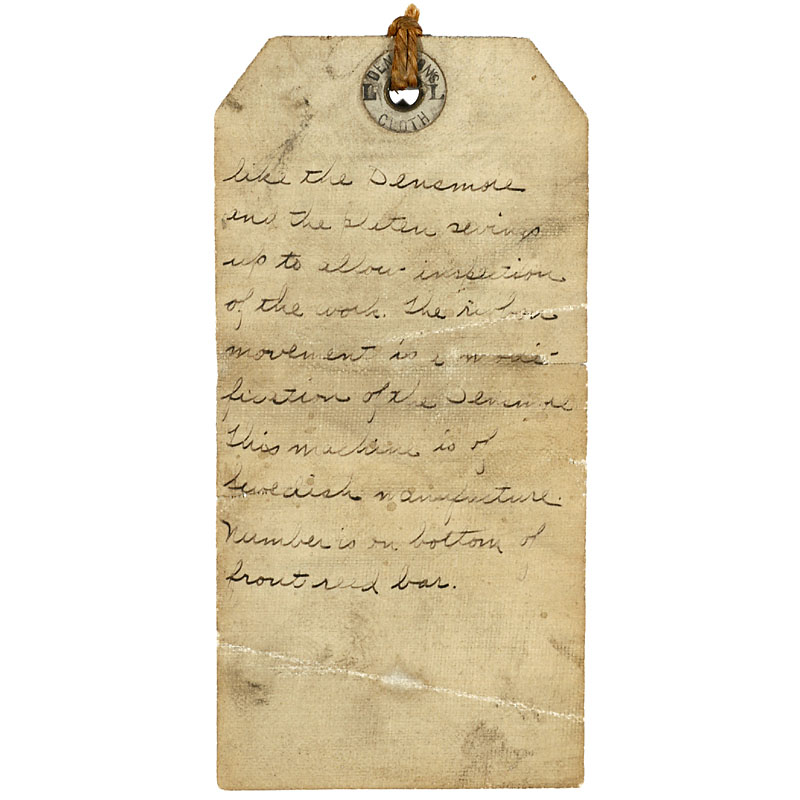 DENNISONS
L L
CLOTH
like the Densmore
and the platen swings
up to allow inspection
of the work. The ribbon
movement is a modi-
fication of the Densmore
This machine is of
Swedish manufacture.
Number is on bottom of
front reed bar.